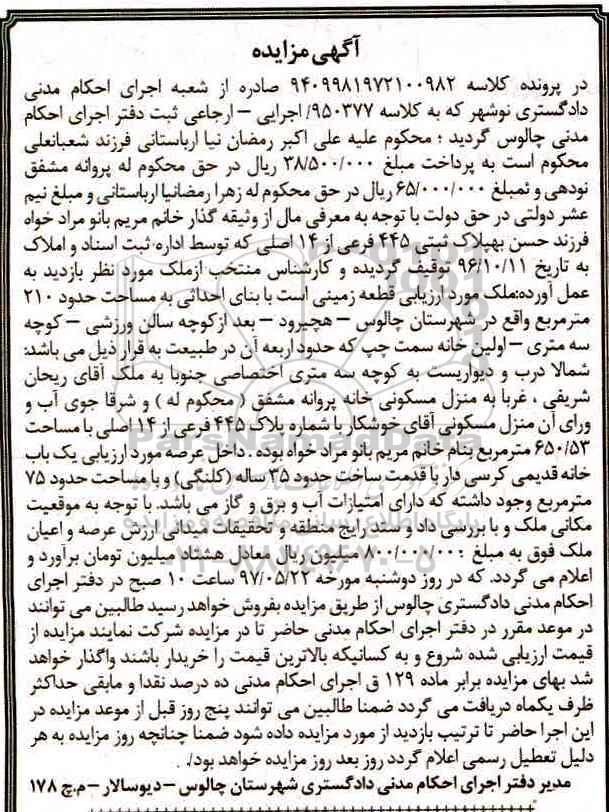 آگهی مزایده
در پرونده کلاسه ۹۴۰۹۹۸۱۹۷۲۱۰۰۹۸۲ صادره از شعبه اجرای احکام مدنی
دادگستری نوشهر که به کلاسه ۹۵۰۳۷۷/ اجرایی – ارجاعی ثبت دفتر اجرای احکام
مدنی چالوس گردید ؛ محکوم علیه علی اکبر رمضان نیا ارباستانی فرزند شعبانعلی
محکوم است به پرداخت مبلغ ۳۸/۵۰۰/۰۰۰ ریال در حق محکوم له پروانه مشفق
نودهی و ثمبلغ ۶۵/۰۰۰/۰۰۰ ریال در حق محکوم له زهرا رمضانیا ارباستانی و مبلغ نیم
عشر دولتی در حق دولت با توجه به معرفی مال از وثیقه گذار خانم مریم بانو مراد خواه
فرزند حسن بهپلاک ثبتی ۴۴۵ فرعی از ۱۴ اصلی که توسط اداره ثبت اسناد و املاک
به تاریخ ۹۶/۱۰/۱۱ توقیف گردیده و کارشناس منتخب ازملک مورد نظر بازدید به
عمل آورده:ملک مورد ارزیابی قطعه زمینی است با بنای احداثی به مساحت حدود ۲۱۰
مترمربع واقع در شهرستان چالوس – هچیرود – بعد ازکوچه سالن ورزشی – کوچه
سه متری – اولین خانه سمت چپ که حدود اربعه آن در طبیعت به قرار ذیل می باشد:
شمالا درب و دیواریست به کوچه سه متری اختصاصی جنوبا به ملک آقای ریحان
شریفی ، غربا به منزل مسکونی خانه پروانه مشفق ( محکوم له ) و شرقا جوی آب و
ورای آن منزل مسکونی آقای خوشکار با شماره پلاک ۴۴۵ فرعی از ۱۴ اصلی با مساحت
۶۵۰/۵۳ مترمربع بنام خانم مریم بانو مراد خواه بوده . داخل عرصه مورد ارزیابی یک باب
خانه قدیمی کرسی دار با قدمت ساخت حدود ۳۵ ساله (کلنگی) و با مساحت حدود ۷۵
مترمربع وجود داشته که دارای امتیازات آب و برق و گاز می باشد. با توجه به موقعیت
مکانی ملک و با بررسی داد و ستد رایج منطقه و تحقیقات میدانی ارزش عرصه و اعیان
ملک فوق به مبلغ ۸۰۰/۰۰۰/۰۰۰ میلیون ریال معادل هشتاد میلیون تومان برآورد و
اعلام می گردد. که در روز دوشنبه مورخه ۹۷/۰۵/۲۲ ساعت ۱۰ صبح در دفتر اجرای
احکام مدنی دادگستری چالوس از طریق مزایده بفروش خواهد رسید طالبین می توانند
در موعد مقرر در دفتر اجرای احکام مدنی حاضر تا در مزایده شرکت نمایند مزایده از
قیمت ارزیابی شده شروع و به کسانیکه بالاترین قیمت را خریدار باشند واگذار خواهد
شد بهای مزایده برابر ماده ۱۲۹ ق اجرای احکام مدنی ده درصد نقدا و مابقی حداکثر
ظرف یکماه دریافت می گردد ضمنا طالبین می توانند پنج روز قبل از موعد مزایده در
این اجرا حاضر تا ترتیب بازدید از مورد مزایده داده شود ضمنا چنانچه روز مزایده به هر
دلیل تعطیل رسمی اعلام گردد روز بعد روز مزایده خواهد بود/.
مدیر دفتر اجرای احکام مدنی دادگستری شهرستان چالوس – دیوسالار – م.چ ۱۷۸
ParsNamadData
پایگاه اطلاع رسانی مناقصه و مزایده
۰۲۱-۸۸۳۴۹۶۷۰-۵